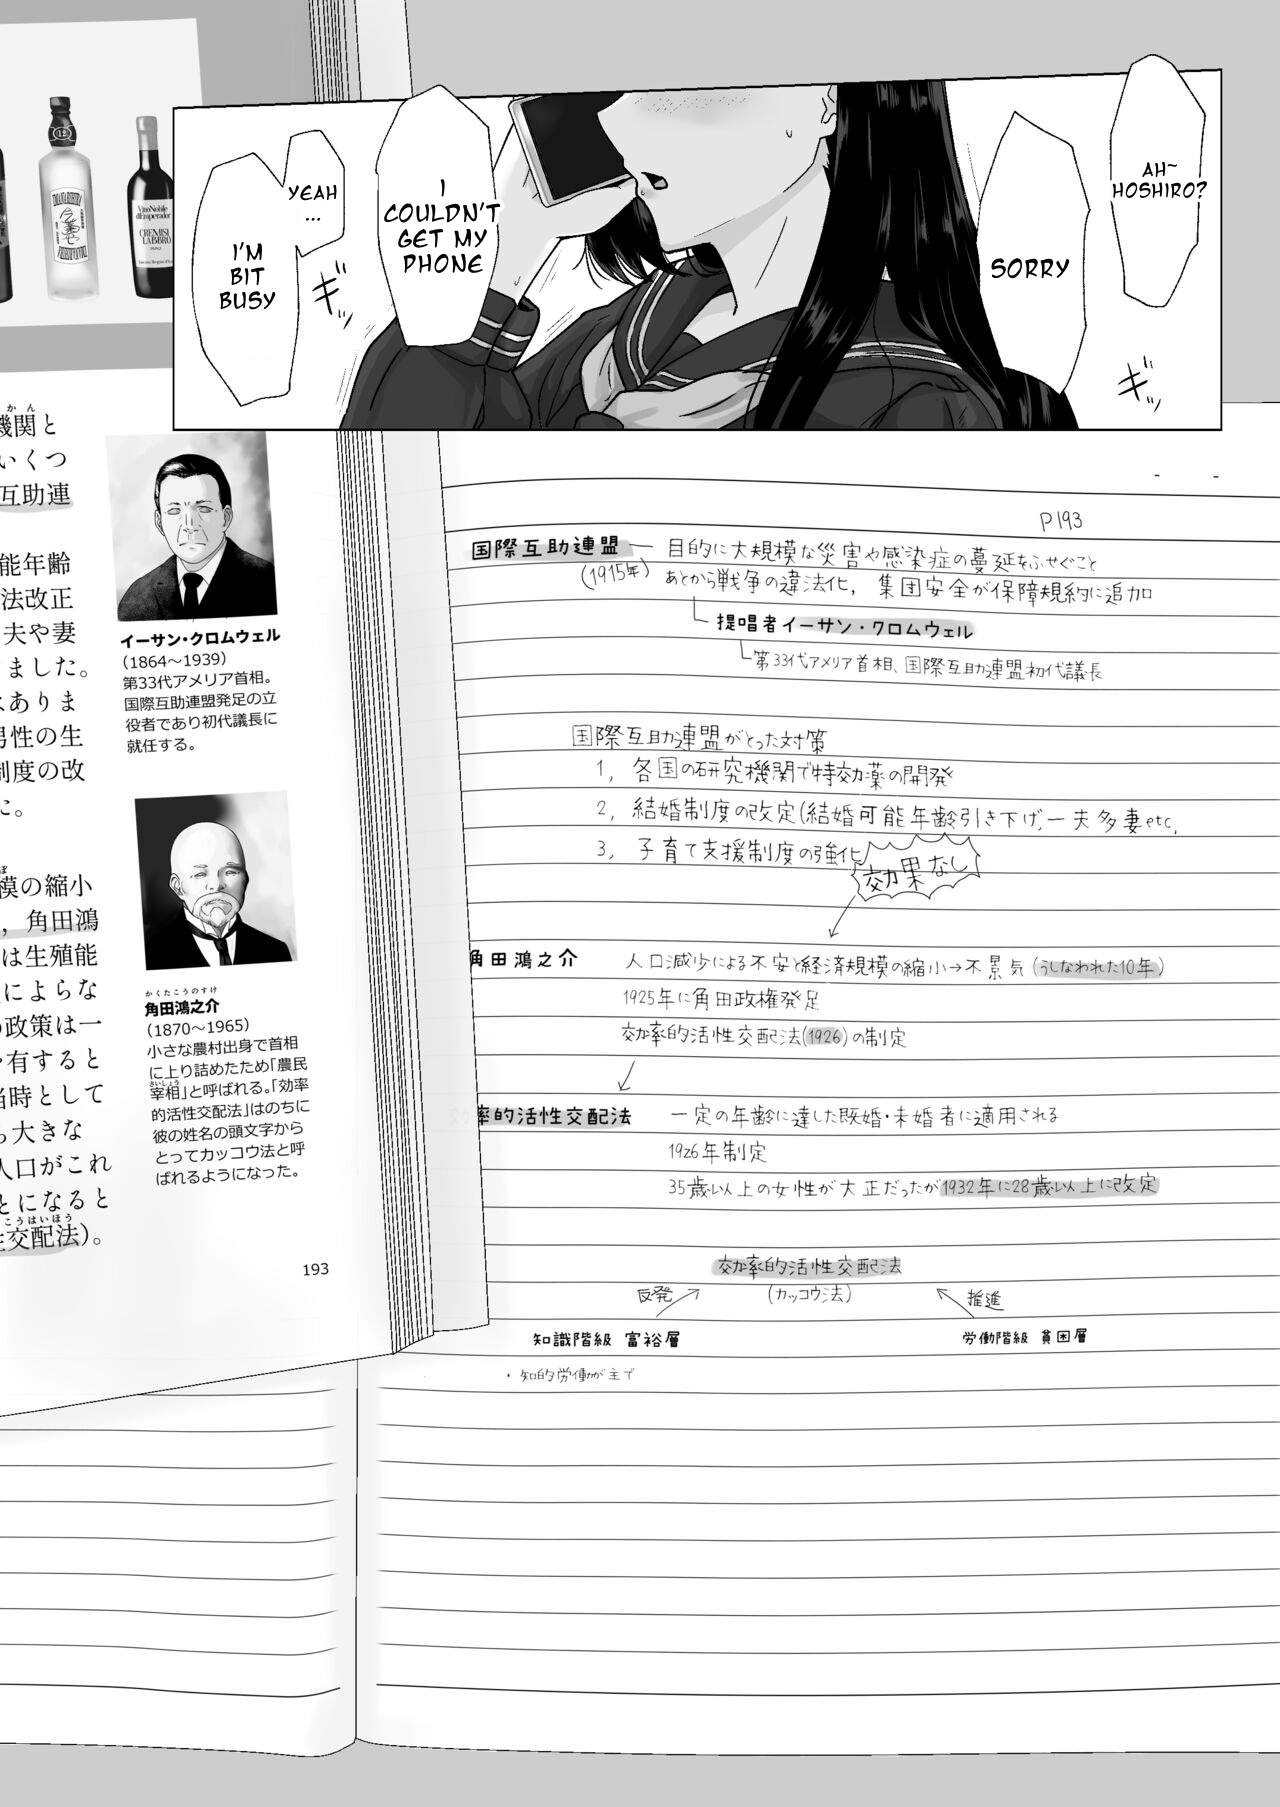 AH~
HOSHIRO?
SORRY
I
COULDN'T
GET MY
PHONE
YEAH
...
I'M
BIT
BUSY
ギッ
ギッ
12
VinoNobile
diEmperador
CREMISI
LABBRO
かん
機関と
いくつ
互助連
能年齢
法改正
夫や妻
りました。
はありま
男性の生
制度の改
た。
模の縮小
，角田鴻
は生殖能
によらな
の政策は一
有すると
当時として
も大きな
人口がこれ
とになると
こうはいほう
性交配法）。
イーサン・クロムウェル
（1864～1939）
第33代アメリア首相。
国際互助連盟発足の立
役者であり初代議長に
就任する。
かくたこうのすけ
角田鴻之介
（1870～1965）
小さな農村出身で首相
に上り詰めたため「農民
さいしょう
宰相」と呼ばれる。「効率
的活性交配法」はのちに
彼の姓名の頭文字から
とってカッコウ法と呼
ばれるようになった。
193
P193
国際互助連盟 ― 目的に大規模な災害や感染症の蔓延をふせぐこと
(1915年) あとから戦争の違法化，集団安全が保障規約に追加
提唱者イーサン・クロムウェル
第33代アメリア首相、国際互助連盟初代議長
国際互助連盟がとった対策
1, 各国の研究機関で特効薬の開発
2, 結婚制度の改定(結婚可能年齢引き下げ, 一夫多妻etc,
3, 子育て支援制度の強化
効果なし
角田鴻之介 人口減少による不安と経済規模の縮小→不景気(うしなわれた10年)
1925年に角田政権発足
効率的活性交配法(1926)の制定
効率的活性交配法 一定の年齢に達した既婚・未婚者に適用される
1926年制定
35歳以上の女性が大正だったが1932年に28歳以上に改定
効率的活性交配法
反発 (カッコウ法) 推進
知識階級 富裕層 労働階級 貧困層
・知的労働が主で